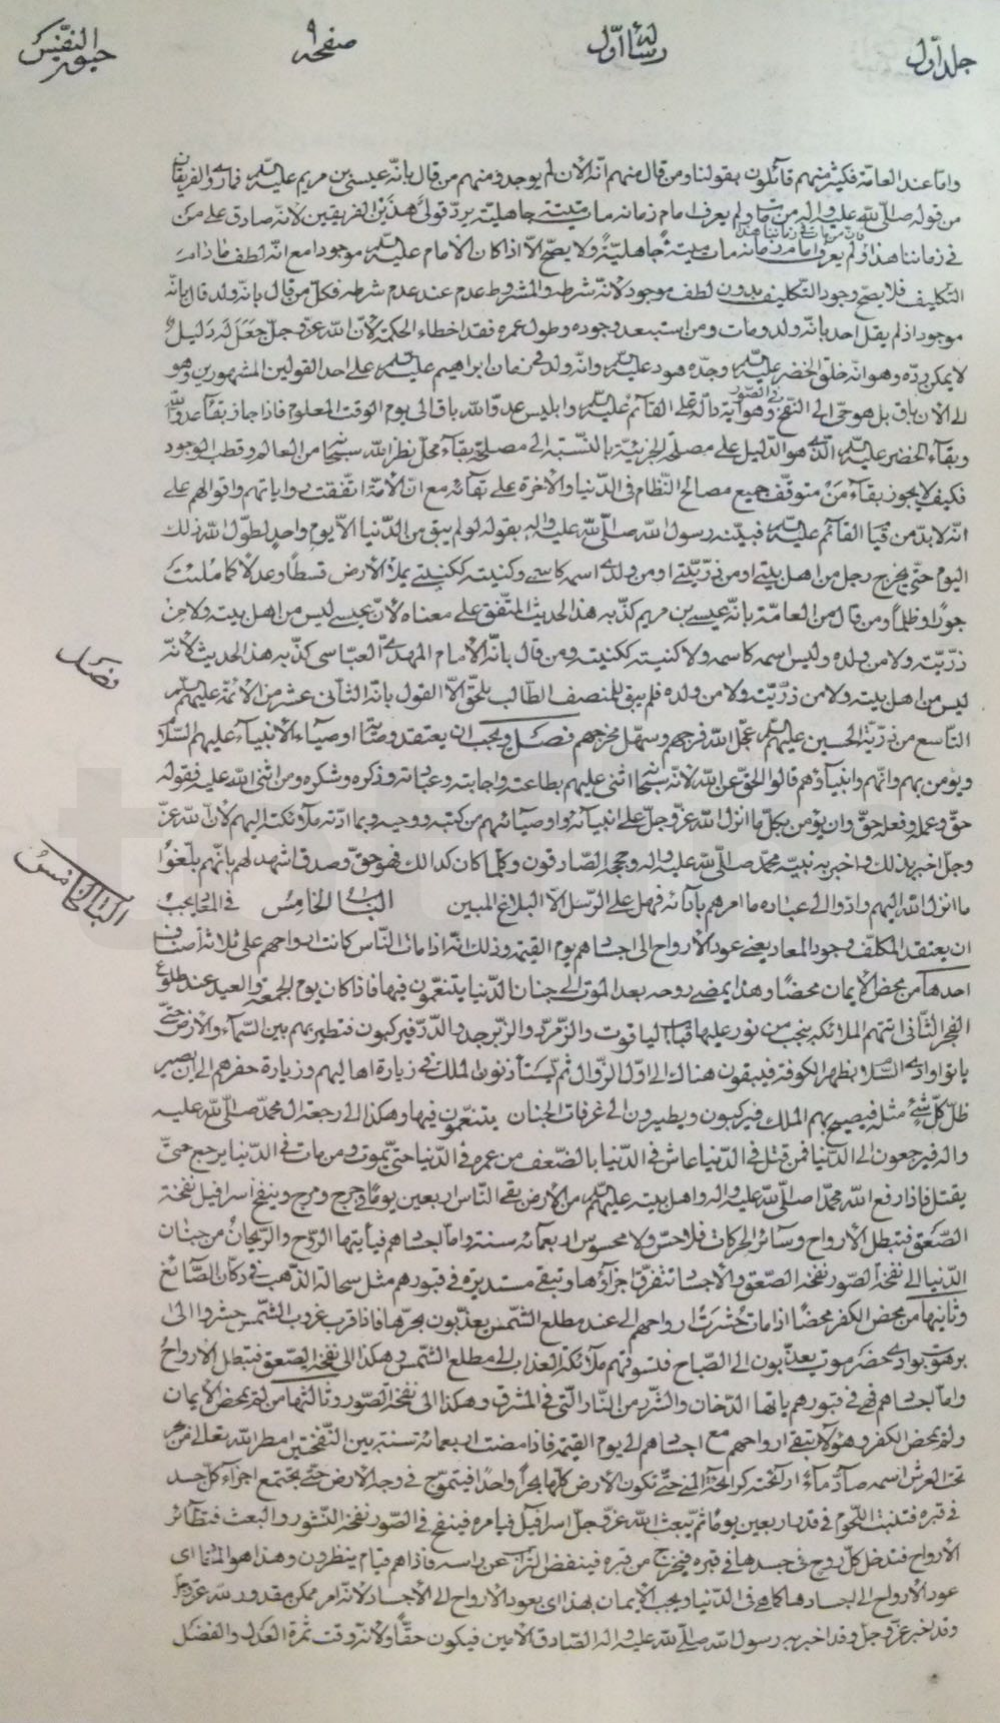 جلد اوّل
رسالة اوّل
صفحه ٩
حيوة النفس
وامّا عند العامة فكثير منهم قائلون بقولنا ومن قال منهم انّه الآن لم يوجد ومنهم من قال بانّه عيسى بن مريم عليه السلم فما رواه الفريقان
من قوله صلى الله عليه واله من مات ولم يعرف امام زمانه مات ميتة جاهليّة يردّ قولى هذين الفريقين لانّه صادق على من
فانّ من مات فى زماننا هذا
فى زماننا هذا ولم يعرف امام زمانه مات ميتةً جاهليّة ولا يصحّ الّا اذا كان الامام عليه السلم موجوداً مع انّه لطف مادامت
التكليف فلا يصحّ وجود التكليف بدون لطف موجود لانّه شرطه والمشروط عدم عند عدم شرطه فكلّ من قال بانه ولد قال بانّه
موجود اذ لم يقل احد بانّه ولد ومات ومن استبعد وجوده وطول عمره فقد اخطاء الحكمة لانّ الله عزّ وجلّ جعل له دليلاً
لا يمكن ردّه وهو انّه خلق الخضر عليه السلم وجدّه هود عليه السلم وانّه ولد فى زمان ابراهيم عليه السلم على احد القولين المشهورين وهو
الى الآن باق بل هو حىّ الى النفخ فى الصور وهو آية دالّة على القائم عليه السلم وابليس عدوّ الله باق الى يوم الوقت المعلوم فاذا جاز بقاء عدوّ الله
وبقاء الخضر عليه السلم الّذى هو الدّليل على مصلحة الجزئيّة بالنّسبة الى مصلحة بقاء محلّ نظر الله سبحانه من العالم وقطب الوجود
فكيف لا يجوز بقاء مَنْ متوقّف جميع مصالح النّظام فى الدّنيا والآخرة على بقائه مع انّ الامّة اتّفقت رواياتهم واقوالهم على
انّه لا بدّ من قيام القائم عليه السلم فبيّنه رسول الله صلى الله عليه واله بقوله لو لم يبق من الدّنيا الّا يوم واحد لطوّل الله ذلك
اليوم حتّى يخرج رجل من اهل بيتى او من ذرّيّتى او من ولدى اسمه كاسمى وكنيته ككنيتى يملأ الأرض قسطاً وعدلاً كما ملئت
جوراً وظلماً ومن قال من العامّة بانّه عيسى بن مريم كذّبه هذا الحديث المتّفق على معناه لانّ عيسى ليس من اهل بيته ولا من
ذرّيّته ولا من ولده وليس اسمه كاسمه ولا كنيته ككنيته ومن قال بانّه الامام المهدىّ العبّاسى كذّبه هذا الحديث لانّه
فصل
ليس من اهل بيته ولا من ذرّيّته ولا من ولده فلم يبق للمنصف الطّالب للحقّ الّا القول بانّه الثّانى عشر من الائمّة عليهم السلم
التاسع من ذرّيّة الحسين عليهم السلم عجّل الله فرجهم وسهّل مخرجهم فصل ويجب ان يعتقد وصاية اوصياء الأنبياء عليهم السّلام
ويؤمن بهم وانّهم وانبياءهم قالوا الحقّ عن الله لانّه سبحانه اثنى عليهم بطاعته واجابته وعبادته وذكره وشكره ومن اثنى الله عليه فقوله
حقّ وعمله وفعله حقّ وان يؤمن بكلّ ما انزل الله عزّ وجلّ على انبيائه واوصيائهم من كتبه ووحيه وبما ادّته ملائكته اليهم لانّ الله عزّ
وجلّ اخبر بذلك واخبر به نبيّه محمّد صلى الله عليه واله وحججه الصّادقون وكلّما كان كذلك فهو حقّ وصدق اشهد لهم بانّهم بلّغوا
الباب الخامس
ما انزل الله اليهم وادّوا الى عباده ما امرهم بادائه فهل على الرّسل الّا البلاغ المبين الباب الخامس فى المعاد يجب
ان يعتقد المكلّف وجود المعاد يعنى عود الأرواح الى اجسادهم يوم القيمة وذلك انّه اذا مات النّاس كانت ارواحهم على ثلاثة اصناف
احدها من محض الإيمان محضاً وهذا يمضى روحه بعد الموت الى جنان الدّنيا يتنعّمون فيها فاذا كان يوم الجمعة والعيد عند طلوع
الفجر الثّانى اتتهم الملائكة بنجب من نور عليها قباب الياقوت والزّمرّد والزّبرجد والدّرّ فيركبون فتطير بهم بين السّماء والأرض حتّى
يأتوا وادى السّلام بظهر الكوفة فيبقون هناك الى اوّل الزّوال ثمّ يستأذنون الملك فى زيارة اهاليهم وزيارة حفرهم الى ان يصير
ظلّ كلّ شئ مثله فيصيح بهم الملك فيركبون ويطيرون الى غرفات الجنان يتنعّمون فيها وهكذا الى رجعة ال محمّد صلى الله عليه
واله فيرجعون الى الدّنيا فمن قتل فى الدّنيا عاش فى الدّنيا بالضّعف من عمره فى الدّنيا حتّى يموت ومن مات فى الدّنيا يرجع حتّى
يقتل فاذا رفع الله محمّدا صلى الله عليه واله واهل بيته عليهم السلم من الأرض بقى النّاس اربعين يوماً فى هرج ومرج وينفخ اسرافيل نفخة
الصّعق فتبطل الأرواح وسائر الحركات فلا حسّ ولا محسوس اربعمائة سنة وامّا اجسادهم فيأتيها الرّوح والرّيحان من جنان
الدّنيا الى نفخة الصّور نفخة الصّعق والأجساد تتفرّق اجزاؤها وتبقى مستديرة فى قبورهم مثل سحالة الذّهب فى دكّان الصّائغ
وثانيها من محض الكفر محضاً اذا مات حُشرت ارواحهم الى عند مطلع الشّمس يعذّبون بحرّها فاذا قرب غروب الشّمس حشروا الى
برهوت بوادى حضر موت يعذّبون الى الصّباح فتسوقهم ملائكة العذاب الى مطلع الشّمس وهكذا الى نفخة الصّعق فتبطل الأرواح
وامّا اجسادهم فهى فى قبورهم يأتيها الدّخان والشّرر من النّار الّتى فى المشرق وهكذا الى نفخة الصّور وثالثها من لم يمحض الإيمان
ولم يمحض الكفر وهؤلاء تبقى ارواحهم مع اجسادهم الى يوم القيمة فاذا مضت اربعمائة سنة بين النّفختين امطر الله تعالى من بحر
تحت العرش اسمه صاد ماءً رائحته كرائحة المنى حتّى تكون الأرض كلّها بحراً واحداً فيتموّج فى وجه الأرض حتّى يجتمع اجزاء كلّ جسد
فى قبره فتنبت اللّحوم فى قدر اربعين يوماً ثمّ يبعث الله عزّ وجلّ اسرافيل فيأمره فينفخ فى الصّور نفخة النّشور والبعث فتطائر
الأرواح فتدخل كلّ روح فى جسدها فى قبره فيخرج من قبره فينفض التّراب عن رأسه فاذا هم قيام ينظرون وهذا هو المعاد اى
عود الأرواح الى اجسادها كما هى فى الدّنيا ويجب الإيمان بهذا اى بعود الأرواح الى الأجساد لانّه امر ممكن مقدور لله عزّ وجلّ
وقد اخبر عزّ وجلّ وقد اخبر به رسول الله صلى الله عليه واله الصّادق الأمين فيكون حقّاً ولانّه وقت ثمرة العدل والفضل